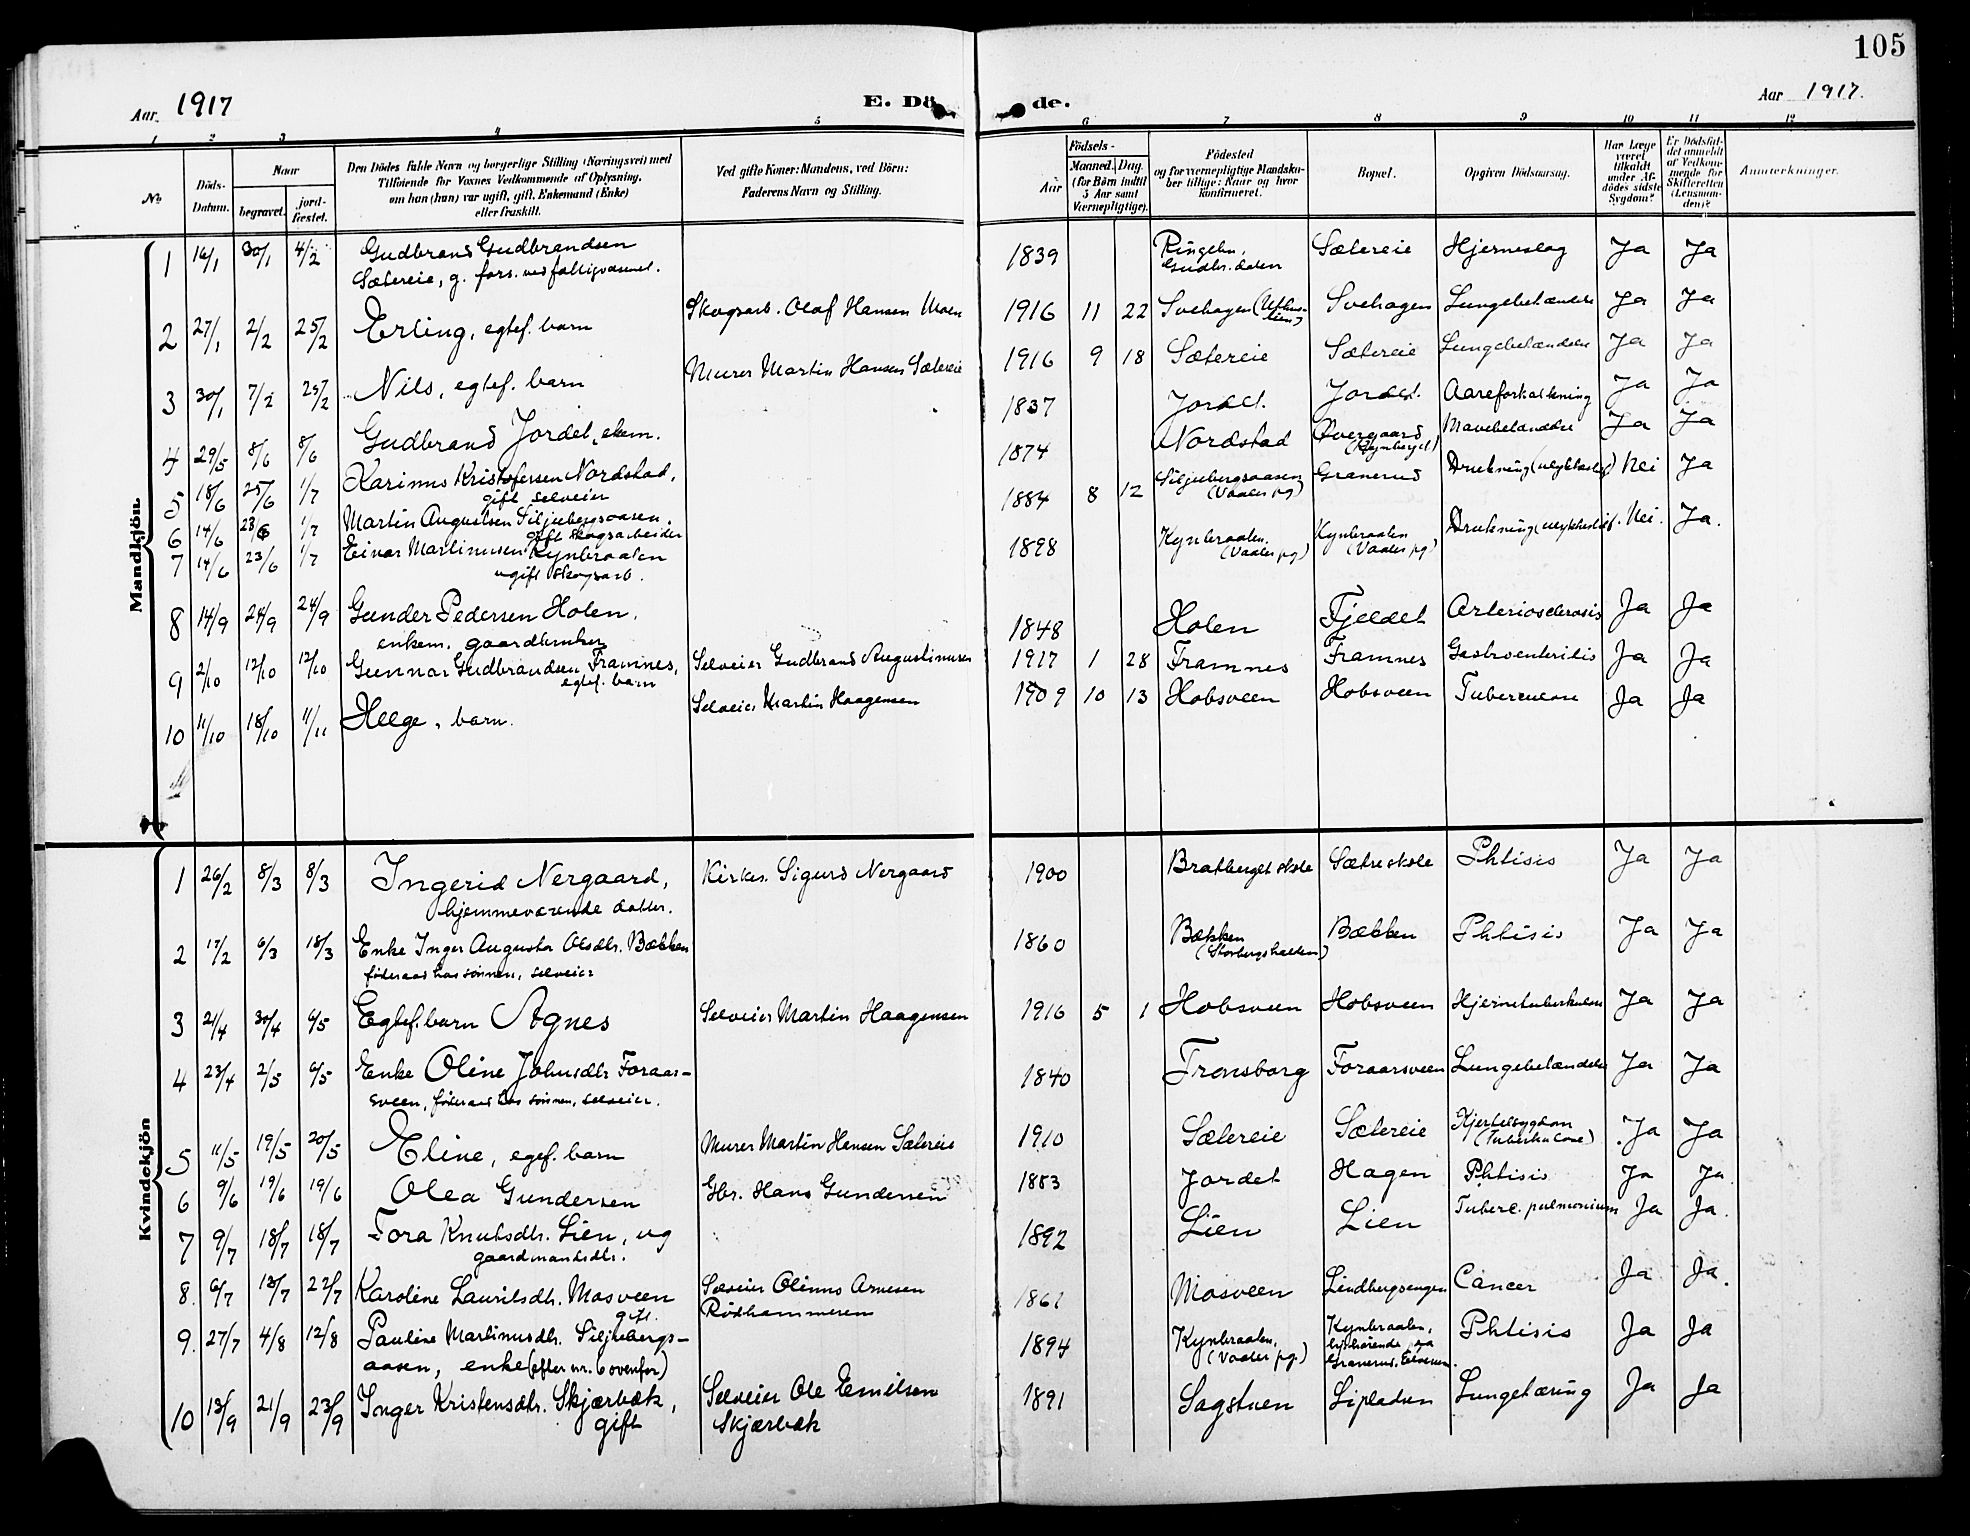 105
Aar 1917 E. Dö de. Aar 1917.
1 2 3 4 5 6 7 8 9 10 11 12
No. Döds-Datum. Naar begravet. jord-fæstet. Den Dödes fulde Navn og borgerlige Stilling (Næringsvei) med Tilføiende for Voxnes Vedkommende af Oplysning, om han (hun) var ugift, gift, Enkemand (Enke) eller fraskilt. Ved gifte Koner: Mandens, ved Börn: Faderens Navn og Stilling. Födsels- Aar Maaned. Dag. (for Börn indtil 5 Aar samt Værnepligtige). Födested og for værnepligtige Mandskaber tillige: Naar og hvor konfirmeret. Bopæl. Opgiven Dödsaarsag. Har Læge været tilkaldt under Afdödes sidste Sygdom? Er Dödsfaldet anmeldt af Vedkommende for Skifteretten (Lensmanden)? Anmerkninger.
Mandkjön.
1 16/1 30/1 4/2 Gudbrand Gudbrandsen 1839 Ringebu, Sætereie Hjerneslag Ja Ja
Sætereie, g. fors. ved fattigvæsenet. Gudbr.dalen
2 27/1 2/2 25/2 Erling, egtef. barn Skogsarb. Olaf Hansen Moen 1916 11 22 Svehagen Svehagen Lungebetændelse Ja Ja
3 30/1 7/2 25/2 Nils, egtef. barn Murer Martin Hansen Sætereie 1916 9 18 Sætereie Sætereie Lungebetændelse Ja Ja
4 29/5 8/6 8/6 Gudbrand Jordet, ekem. 1837 Jordet. Jordet. Aareforkalkning Ja Ja
5 18/6 25/6 1/7 Karinus Kristofersen Nordstad, 1874 Nordstad Øvergaard Mavebetændelse Ja Ja
gift selveier
6 14/6 23/6 1/7 Martin Augustsen Siljubergsaasen. 1884 8 12 Siljubergsaasen (Vaaler pg) Granerud Drukning Nei Ja
gift skogsarbeider
7 14/6 23/6 1/7 Einar Martinusen Kynbraaten 1898 Kynbraaten. (Vaaler pg) Kynbraaten (Vaaler pg) Drukning Nei. Ja.
ugift skogsarb.
8 14/9 24/9 24/9 Gunder Pedersen Holen, 1848 Holen Fjeldet Arteriosclerosis Ja Ja
enkem. gaardbruker
9 2/10 12/10 12/10 Gunnar Gudbrandsen Framnes, Selveier Gudbrand Augustinusen 1917 1 28 Framnes Framnes Gastroenteritis Ja Ja
egtef. barn
10 11/10 18/10 11/11 Helge, barn. Selveier Martin Haagensen 1909 10 13 Hobsveen Hobsveen Tuberculose Ja Ja
Kvindekjön
1 26/2 8/3 8/3 Ingerid Nergaard, Kirkes. Sigurd Nergaard 1900 Bratberget skole Sætre skole Phtisis Ja Ja
hjemmeværende datter.
2 17/2 6/3 18/3 Enke Inger Augusta Olsdtr. Bækken 1860 Bækken (Storbergshalden) Bækken Phtisis Ja Ja
føderaad hos sönnen, selveier
3 21/4 30/4 6/5 Egtef. barn Agnes Selveier Martin Haagensen 1916 5 1 Hobsveen Hobsveen Hjernetuberkulose Ja Ja
4 23/4 2/5 6/5 Enke Oline Johnsdtr Foraar- 1840 Fronsborg Foraarsveen Lungebetændelse Ja Ja
sveen, føderaad hos sönnen, selveier.
5 11/5 19/5 20/5 Eline, egef. barn Murer Martin Hansen Sætereie 1910 Sætereie Sætereie Kjertelsygdom (Tuberkulose) Ja Ja
6 9/6 19/6 19/6 Olea Gundersen Gbr. Hans Gundersen 1883 Jordet Hagen Phtisis Ja Ja
7 9/7 18/7 18/7 Tora Knutsdtr. Lien, ug 1892 Lien Lien Tuberc. pulmonium Ja Ja.
gaardmandsdtr.
8. 6/7 13/7 22/7 Karoline Lauritsdtr. Mosveen Selveier Olinus Arnesen 1861 Mosveen Lindbergsengen Cancer Ja Ja.
gift. Rödhammeren
9. 27/7 4/8 12/8 Pauline Martinusdtr. Siljubergs- 1894 Kynbraaten. (Vaaler pg.) Kynbraaten, Phtisis Ja Ja
aasen, enke (efter nr. 6 ovenfor)
10 13/9 21/9 23/9 Inger Kristensdtr. Skjærbæk, Selveier Ole Emilsen 1891 Sagstuen Sipladsen Lungetæring Ja Ja
gift Skjærbæk